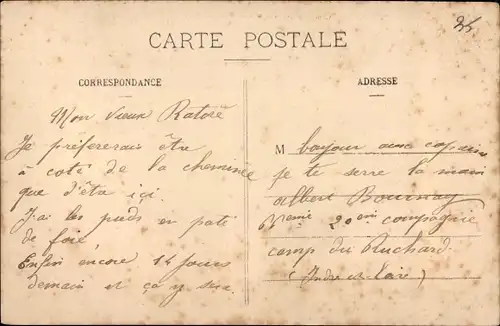 24
CARTE POSTALE
CORRESPONDANCE
ADRESSE
Mon vieux
Je préfererais être
à coté de la cheminée
que d'être ici
J'ai les pieds en paté
de foie,
Enfin encore 14 jours
demain et ça y sera
M bonjour aux copains
je te serre la main
albert Bournay
20eme compagnie
camp du Ruchard.
(Indre et Loire)